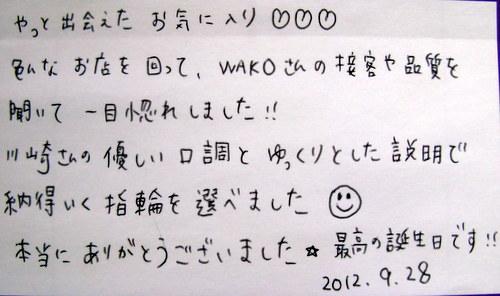 やっと出会えた お気に入り ♡♡♡
色んな お店を 回って、WAKOさんの接客や品質を
聞いて 一目惚れしました!!
川崎さんの 優しい口調と ゆっくりとした説明で
納得いく 指輪を 選べました ☺
本当に ありがとうございました ☆ 最高の誕生日です!!
2012.9.28